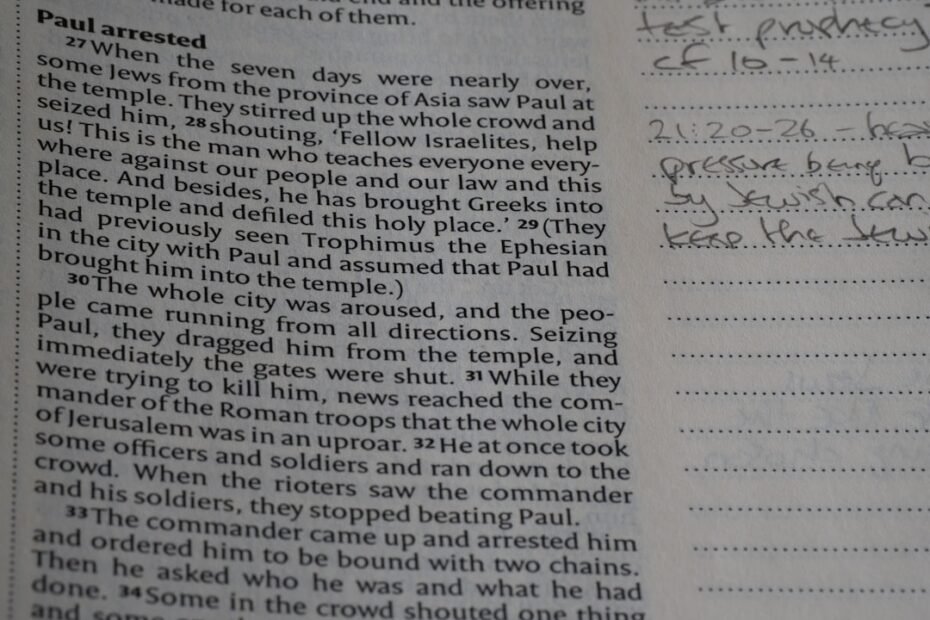 made for each of them.
and the offering
Paul arrested
27 When the seven days were nearly over,
some Jews from the province of Asia saw Paul at
the temple. They stirred up the whole crowd and
seized him, 28 shouting, ‘Fellow Israelites, help
us! This is the man who teaches everyone every-
where against our people and our law and this
place. And besides, he has brought Greeks into
the temple and defiled this holy place.’ 29 (They
had previously seen Trophimus the Ephesian
in the city with Paul and assumed that Paul had
brought him into the temple.)
30 The whole city was aroused, and the peo-
ple came running from all directions. Seizing
Paul, they dragged him from the temple, and
immediately the gates were shut. 31 While they
were trying to kill him, news reached the com-
mander of the Roman troops that the whole city
of Jerusalem was in an uproar. 32 He at once took
some officers and soldiers and ran down to the
crowd. When the rioters saw the commander
and his soldiers, they stopped beating Paul.
33 The commander came up and arrested him
and ordered him to be bound with two chains.
Then he asked who he was and what he had
done. 34 Some in the crowd shouted one thing
and some
test prophecy
cf 10-14
21:20-26 -
pressure being
by Jewish
keep the